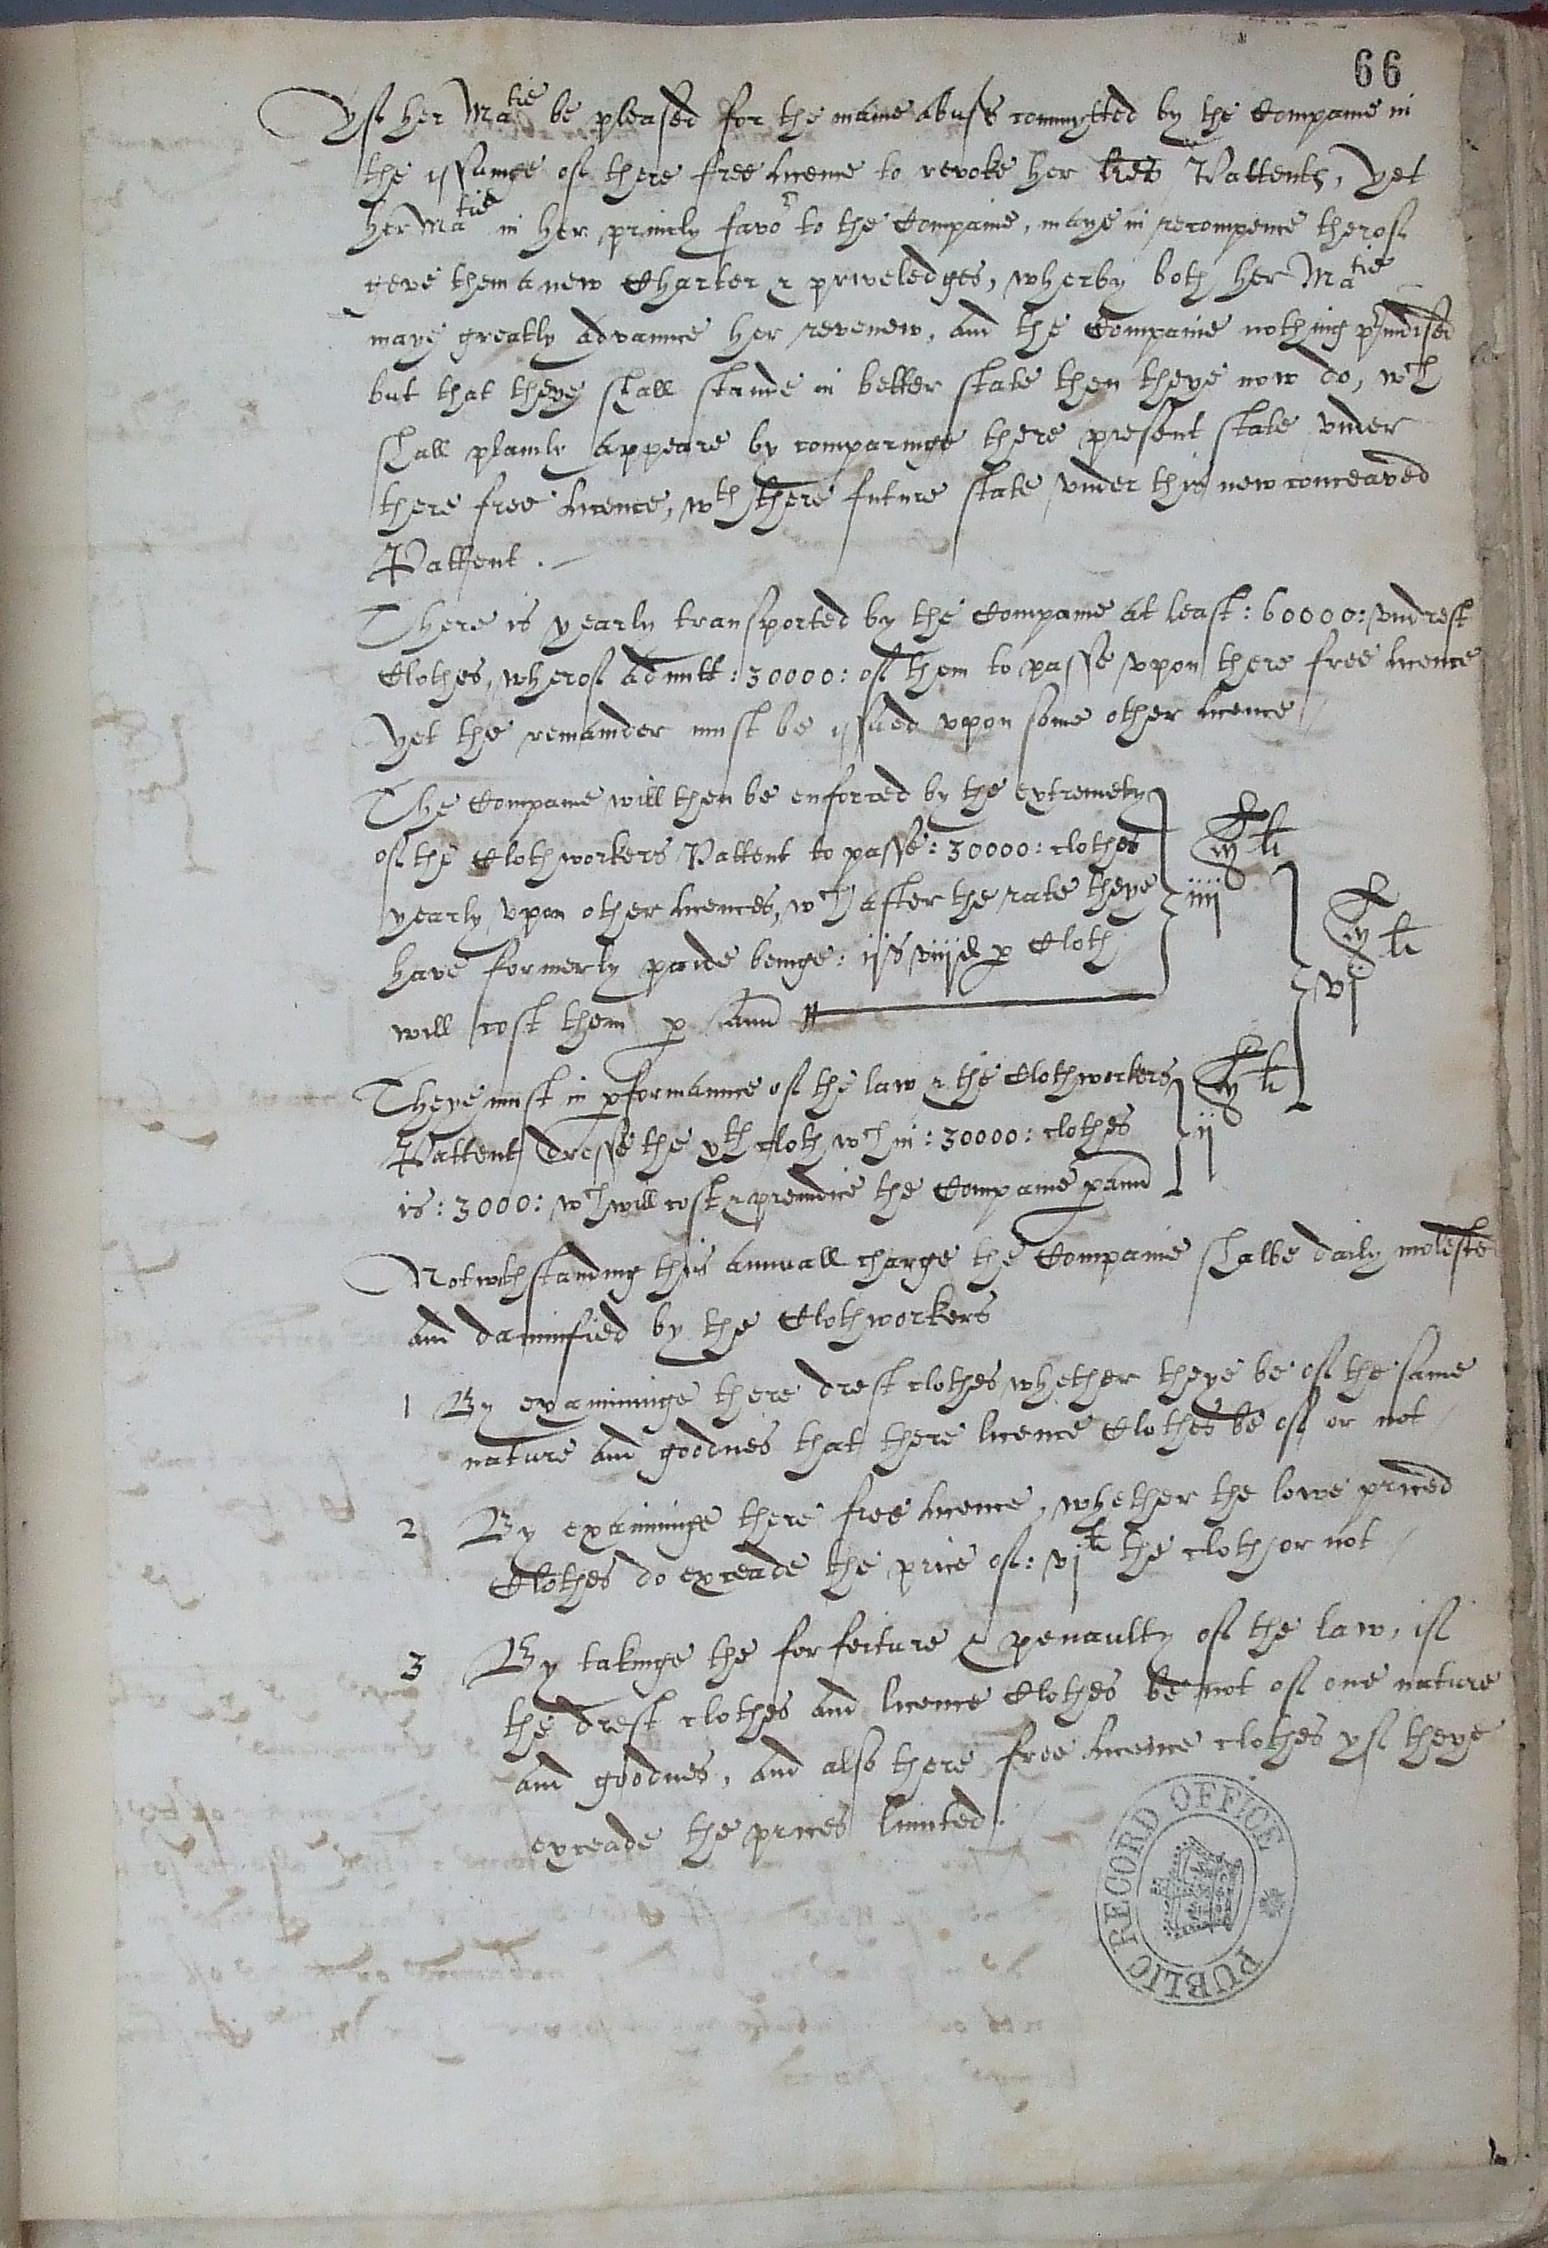 66
Yf her Matie be pleased for the manie abuses commytted by the Companie in
the yssuinge of there free licence to revoke her lres Pattents, yet
her Matie in her princly favor to the Companie, maye in recompence therof
geve them a new Charter & priveledges, wherby both her Matie
maye greatly advannce her revenew, and the Companie nothing preiudised
but that theye shall stande in better state then theye now do, wch
shall plainly appeare by comparinge there present state vnder
there free licence, wth there future state vnder this new conceaved
Pattent .
There is yearly transported by the Companie at least : 60000 : vndrest
Clothes, wherof admitt : 30000 : of them to passe vpon there free licence
yet the remainder must be yssued vpon some other licence
The Companie will then be enforced by the extremety
of the Clothworkers Pattent to passe : 30000 : clothes
yearly vpon other licences, wch after the rate theye
have formerly paide beinge : ijs viijd p Cloth
will cost them p Ann
iiij M li
Theye must in pformannce of the law & the Clothworkers
Pattent dresse the xth cloth wch in : 30000 : clothes
is : 3000 : wch will cost & preiudice the Companie p ann
ij M li
vj M li
Notwthstanding this annuall charge the Companie shalbe daily moleste
and damnified by the Clothworkers
1 By examininge there drest clothes whether theye be of the same
nature and goodnes that there licence Clothes be of or not
2 By examininge there free licence, whether the lowe priced
Clothes do exceade the price of : vj li the cloth or not
3 By takinge the forfeiture & penaulty of the law, if
the drest clothes and licence Clothes be not of one nature
and goodnes, and also there free licence clothes yf theye
exceade the prices limited .
PUBLIC RECORD OFFICE